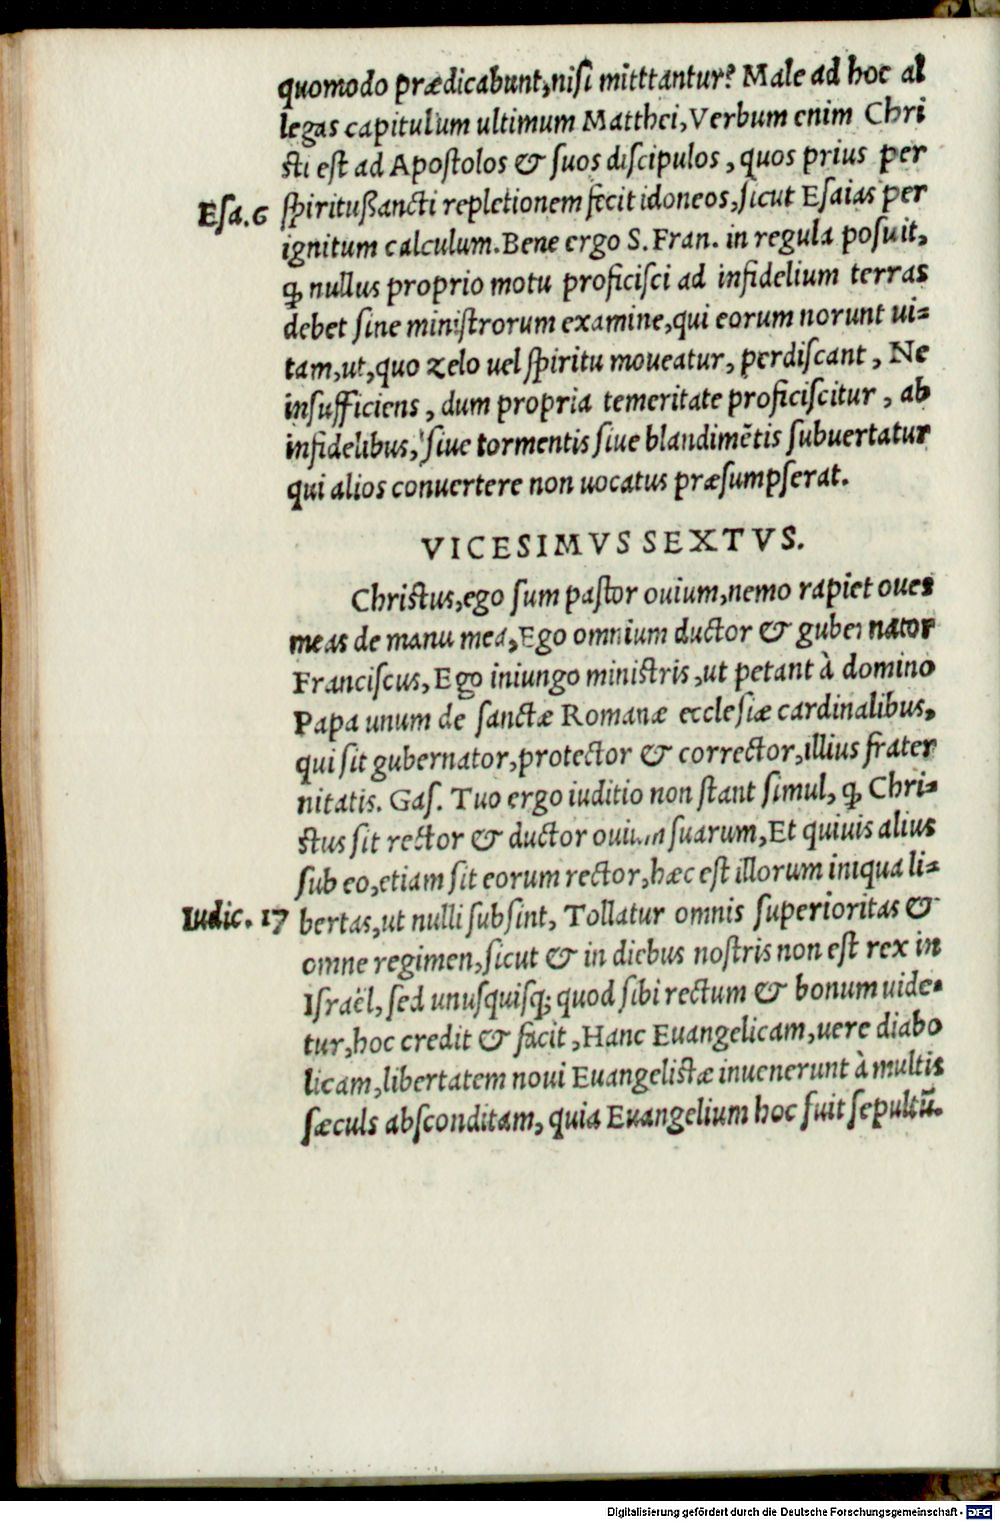 quomodo prædicabunt, niſi mitttantur? Male ad hoc al
legas capitulum ultimum Matthei, Verbum enim Chri
ſti eſt ad Apoſtolos & ſuos diſcipulos, quos prius per
Eſa. 6 ſpirituſſancti repletionem fecit idoneos, ſicut Eſaias per
ignitum calculum. Bene ergo S. Fran. in regula poſuit,
ꝙ nullus proprio motu proficiſci ad infidelium terras
debet ſine miniſtrorum examine, qui eorum norunt ui=
tam, ut, quo zelo uel ſpiritu moueatur, perdiſcant, Ne
inſufficiens, dum propria temeritate proficiſcitur, ab
infidelibus, ſiue tormentis ſiue blandimētis ſubuertatur
qui alios conuertere non uocatus præſumpſerat.
VICESIMVS SEXTVS.
Chriſtus, ego ſum paſtor ouium, nemo rapiet oues
meas de manu mea, Ego omnium ductor & gubernator
Franciſcus, Ego iniungo miniſtris, ut petant à domino
Papa unum de ſanctæ Romanæ eccleſiæ cardinalibus,
qui ſit gubernator, protector & corrector, illius frater
nitatis. Gaſ. Tuo ergo iuditio non ſtant ſimul, ꝙ Chri=
ſtus ſit rector & ductor ouium ſuarum, Et quiuis alius
ſub eo, etiam ſit eorum rector, hæc eſt illorum iniqua li=
Iudic. 17 bertas, ut nulli ſubſint, Tollatur omnis ſuperioritas &
omne regimen, ſicut & in diebus noſtris non eſt rex in
Iſraël, ſed unuſquiſq; quod ſibi rectum & bonum uide=
tur, hoc credit & facit, Hanc Euangelicam, uere diabo
licam, libertatem noui Euangeliſtæ inuenerunt à multis
ſæculs abſconditam, quia Euangelium hoc fuit ſepultū.
Digitalisierung gefördert durch die Deutsche Forschungsgemeinschaft - DFG